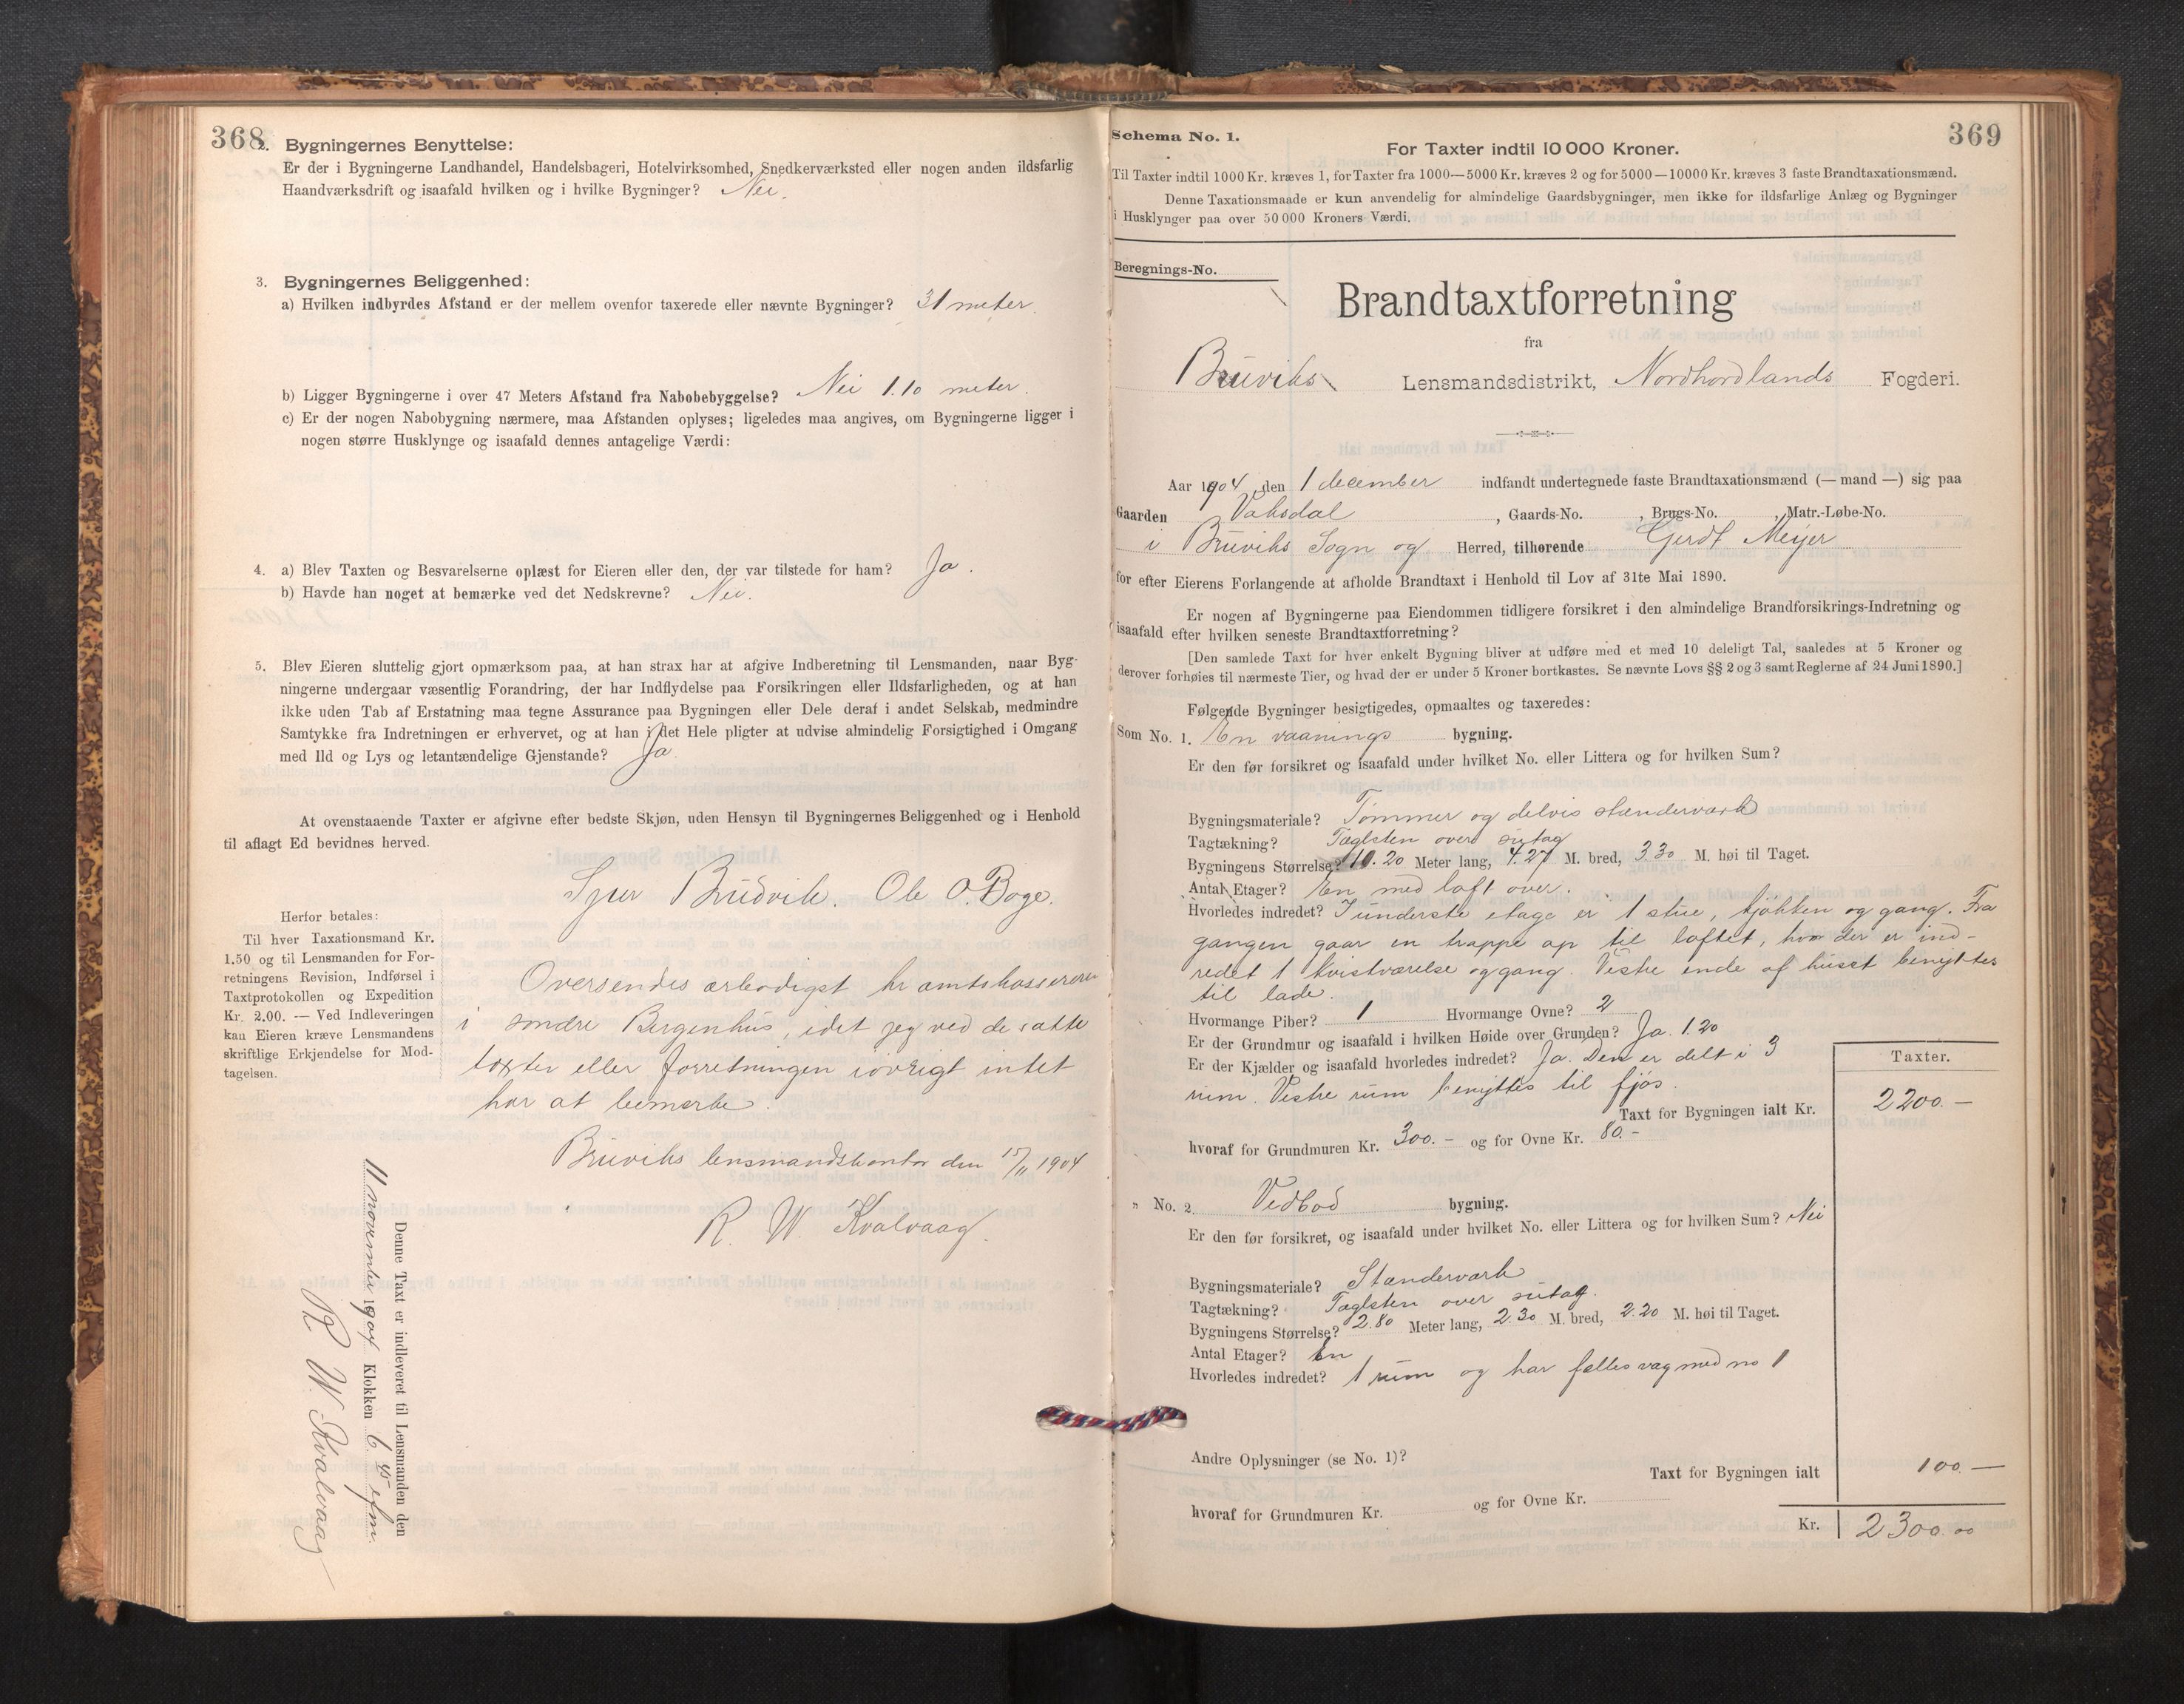 368
2. Bygningernes Benyttelse:
Er der i Bygningerne Landhandel, Handelsbageri, Hotelvirksomhed, Snedkerværksted eller nogen anden ildsfarlig
Haandværksdrift og isaafald hvilken og i hvilke Bygninger? Nei.
3. Bygningernes Beliggenhed:
a) Hvilken indbyrdes Afstand er der mellem ovenfor taxerede eller nævnte Bygninger? 31 meter.
b) Ligger Bygningerne i over 47 Meters Afstand fra Nabobebyggelse? Nei 1.10 meter.
c) Er der nogen Nabobygning nærmere, maa Afstanden oplyses; ligeledes maa angives, om Bygningerne ligger i
nogen større Husklynge og isaafald dennes antagelige Værdi:
4. a) Blev Taxten og Besvarelserne oplæst for Eieren eller den, der var tilstede for ham? Ja.
b) Havde han noget at bemærke ved det Nedskrevne? Nei.
5. Blev Eieren sluttelig gjort opmærksom paa, at han strax har at afgive Indberetning til Lensmanden, naar Byg-
ningerne undergaar væsentlig Forandring, der har Indflydelse paa Forsikringen eller Ildsfarligheden, og at han
ikke uden Tab af Erstatning maa tegne Assurance paa Bygningen eller Dele deraf i andet Selskab, medmindre
Samtykke fra Indretningen er erhvervet, og at han i det Hele pligter at udvise almindelig Forsigtighed i Omgang
med Ild og Lys og letantændelige Gjenstande? Ja.
At ovenstaaende Taxter er afgivne efter bedste Skjøn, uden Hensyn til Bygningernes Beliggenhed og i Henhold
til aflagt Ed bevidnes herved.
Sjur Brudvik. Ole O. Boge.
Herfor betales:
Til hver Taxationsmand Kr.
1.50 og til Lensmanden for For-
retningens Revision, Indførsel i
Taxtprotokollen og Expedition
Kr. 2.00. — Ved Indleveringen
kan Eieren kræve Lensmandens
skriftlige Erkjendelse for Mod-
tagelsen.
Oversendes ærbødigst hr amtskasereren
i søndre Bergenhus, idet jeg ved de satte
taxter eller forretningen iøvrigt intet
har at bemerke.
Bruviks lensmandskontor den 15/11 1904
R. W. Kvalvaag.
Denne Taxt er indleveret til Lensmanden den
11 november 1904 Klokken 6.45 efm.
R W. Kvalvaag
Schema No. 1.
369
For Taxter indtil 10000 Kroner.
Til Taxter indtil 1000 Kr. kræves 1, for Taxter fra 1000—5000 Kr. kræves 2 og for 5000—10000 Kr. kræves 3 faste Brandtaxationsmænd.
Denne Taxationsmaade er kun anvendelig for almindelige Gaardsbygninger, men ikke for ildsfarlige Anlæg og Bygninger
i Husklynger paa over 50000 Kroners Værdi.
Beregnings-No.
Brandtaxtforretning
fra
Bruviks Lensmandsdistrikt, Nordhordlands Fogderi.
Aar 1904 den 1 december indfandt undertegnede faste Brandtaxationsmænd (— mand —) sig paa
Gaarden Vaksdal, Gaards-No. , Brugs-No. , Matr.-Løbe-No.
i Bruviks Sogn og Herred, tilhørende Gerdt Meyer
for efter Eierens Forlangende at afholde Brandtaxt i Henhold til Lov af 31te Mai 1890.
Er nogen af Bygningerne paa Eiendommen tidligere forsikret i den almindelige Brandforsikrings-Indretning og
isaafald efter hvilken seneste Brandtaxtforretning?
[Den samlede Taxt for hver enkelt Bygning bliver at udføre med et med 10 deleligt Tal, saaledes at 5 Kroner og
derover forhøies til nærmeste Tier, og hvad der er under 5 Kroner bortkastes. Se nævnte Lovs §§ 2 og 3 samt Reglerne af 24 Juni 1890.]
Følgende Bygninger besigtigedes, opmaaltes og taxeredes:
Som No. 1. En vaanings bygning.
Er den før forsikret og isaafald under hvilket No. eller Littera og for hvilken Sum?
Bygningsmateriale? Tømmer og delvis stænderværk
Tagtækning? Taglsten over sutag
Bygningens Størrelse? 10.20 Meter lang, 4.27 M. bred, 3.30 M. høi til Taget.
Antal Etager? En med loft over.
Hvorledes indredet? I underste etage er 1 stue, kjøkken og gang. Fra
gangen gaar en trappe op til loftet, hvor der er ind-
redet 1 kvistværelse og gang. Vestre ende af huset benyttes
til lade.
Hvormange Piber? 1 Hvormange Ovne? 2
Er der Grundmur og isaafald i hvilken Høide over Grunden? Ja. 1.20
Er der Kjælder og isaafald hvorledes indredet? Ja. Den er delt i 3
rum. Vestre rum benyttes til fjøs.
Taxter.
Taxt for Bygningen ialt Kr. 2200.—
hvoraf for Grundmuren Kr. 300.— og for Ovne Kr. 80.—
" No. 2. Vedbod bygning.
Er den før forsikret, og isaafald under hvilket No. eller Littera og for hvilken Sum? Nei
Bygningsmateriale? Stænderværk
Tagtækning? Taglsten over sutag.
Bygningens Størrelse? 2.80 Meter lang, 2.30 M. bred, 2.20 M. høi til Taget.
Antal Etager? En
Hvorledes indredet? 1 rum og har fælles væg med no 1
Andre Oplysninger (se No. 1)?
Taxt for Bygningen ialt 100.—
hvoraf for Grundmuren Kr. og for Ovne Kr.
Kr. 2300.00